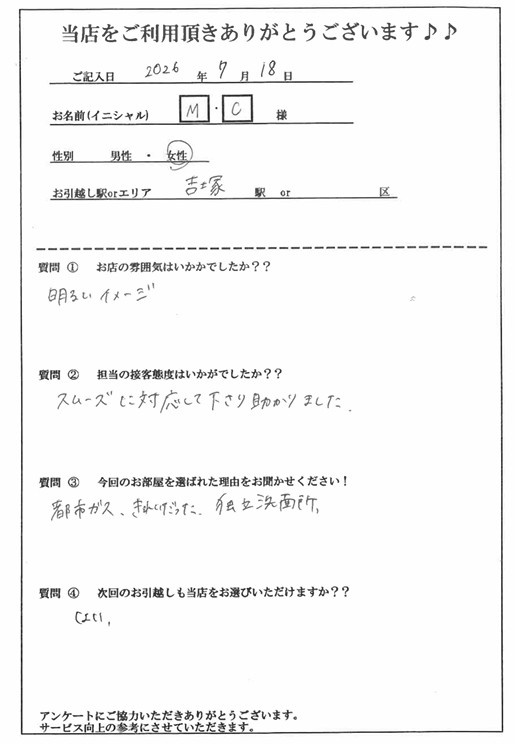 当店をご利用頂きありがとうございます♪♪
ご記入日 2026 年 7 月 18 日
お名前(イニシャル) M ・ C 様
性別 男性 ・ 女性
お引越し駅orエリア 吉塚 駅 or 区
質問 ① お店の雰囲気はいかかでしたか??
明るいイメージ
質問 ② 担当の接客態度はいかがでしたか??
スムーズに対応して下さり助かりました.
質問 ③ 今回のお部屋を選ばれた理由をお聞かせください!
都市ガス、きれいだった. 独立洗面所,
質問 ④ 次回のお引越しも当店をお選びいただけますか??
はい,
アンケートにご協力いただきありがとうございます。
サービス向上の参考にさせていただきます。